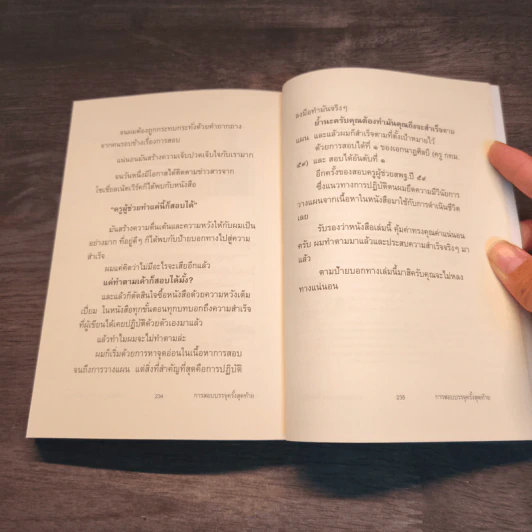 จนผมต้องถูกกระทบกระทั่งด้วยคำถากถาง
จากคนรอบข้างเรื่องการสอบ
แน่นอนมันสร้างความเจ็บปวดเจ็บใจกับเรามาก
จนวันหนึ่งมีโอกาสได้ติดตามข่าวสารจาก
โซเชียลเน็ตเวิร์คก็ได้พบกับหนังสือ
"ครูผู้ช่วยทำแค่นี้ก็สอบได้"
มันสร้างความตื่นเต้นและความหวังให้กับผมเป็น
อย่างมาก ที่อยู่ดีๆ ก็ได้พบกับป้ายบอกทางไปสู่ความ
สำเร็จ
ผมแค่คิดว่าไม่มีอะไรจะเสียอีกแล้ว
แค่ทำตามเค้าก็สอบได้มั้ง?
และแล้วก็ตัดสินใจซื้อหนังสือด้วยความหวังเต็ม
เปี่ยม ในหนังสือทุกขั้นตอนทุกบทบอกถึงความสำเร็จ
ที่ผู้เขียนได้เคยปฏิบัติด้วยตัวเองมาแล้ว
แล้วทำไมผมจะไม่ทำตามล่ะ
ผมก็เริ่มด้วยการหาจุดอ่อนในเนื้อหาการสอบ
จนถึงการวางแผน แต่สิ่งที่สำคัญที่สุดคือการปฏิบัติ
234 การสอบบรรจุครั้งสุดท้าย
ลงมือทำมันจริงๆ
ย้ำนะครับคุณต้องทำมันคุณถึงจะสำเร็จตาม
แผน และแล้วผมก็สำเร็จตามที่ตั้งเป้าหมายไว้
ด้วยการสอบได้ที่ ๑ ของเอกนาฏศิลป์ (ครู กทม.
๕๙) และ สอบได้อันดับที่ ๑
อีกครั้งของสอบครูผู้ช่วยสพฐ.ปี ๕๙
ซึ่งแนวทางการปฏิบัติตนผมยึดความมีวินัยการ
วางแผนจากเนื้อหาในหนังสือมาใช้กับการดำเนินชีวิต
เลย
รับรองว่าหนังสือเล่มนี้ คุ้มค่าทรงคุณค่าแน่นอน
ครับ ผมทำตามมาแล้วและประสบความสำเร็จจริงๆ มา
แล้ว
ตามป้ายบอกทางเล่มนี้มาสิครับคุณจะไม่หลง
ทางแน่นอน
235 การสอบบรรจุครั้งสุดท้าย